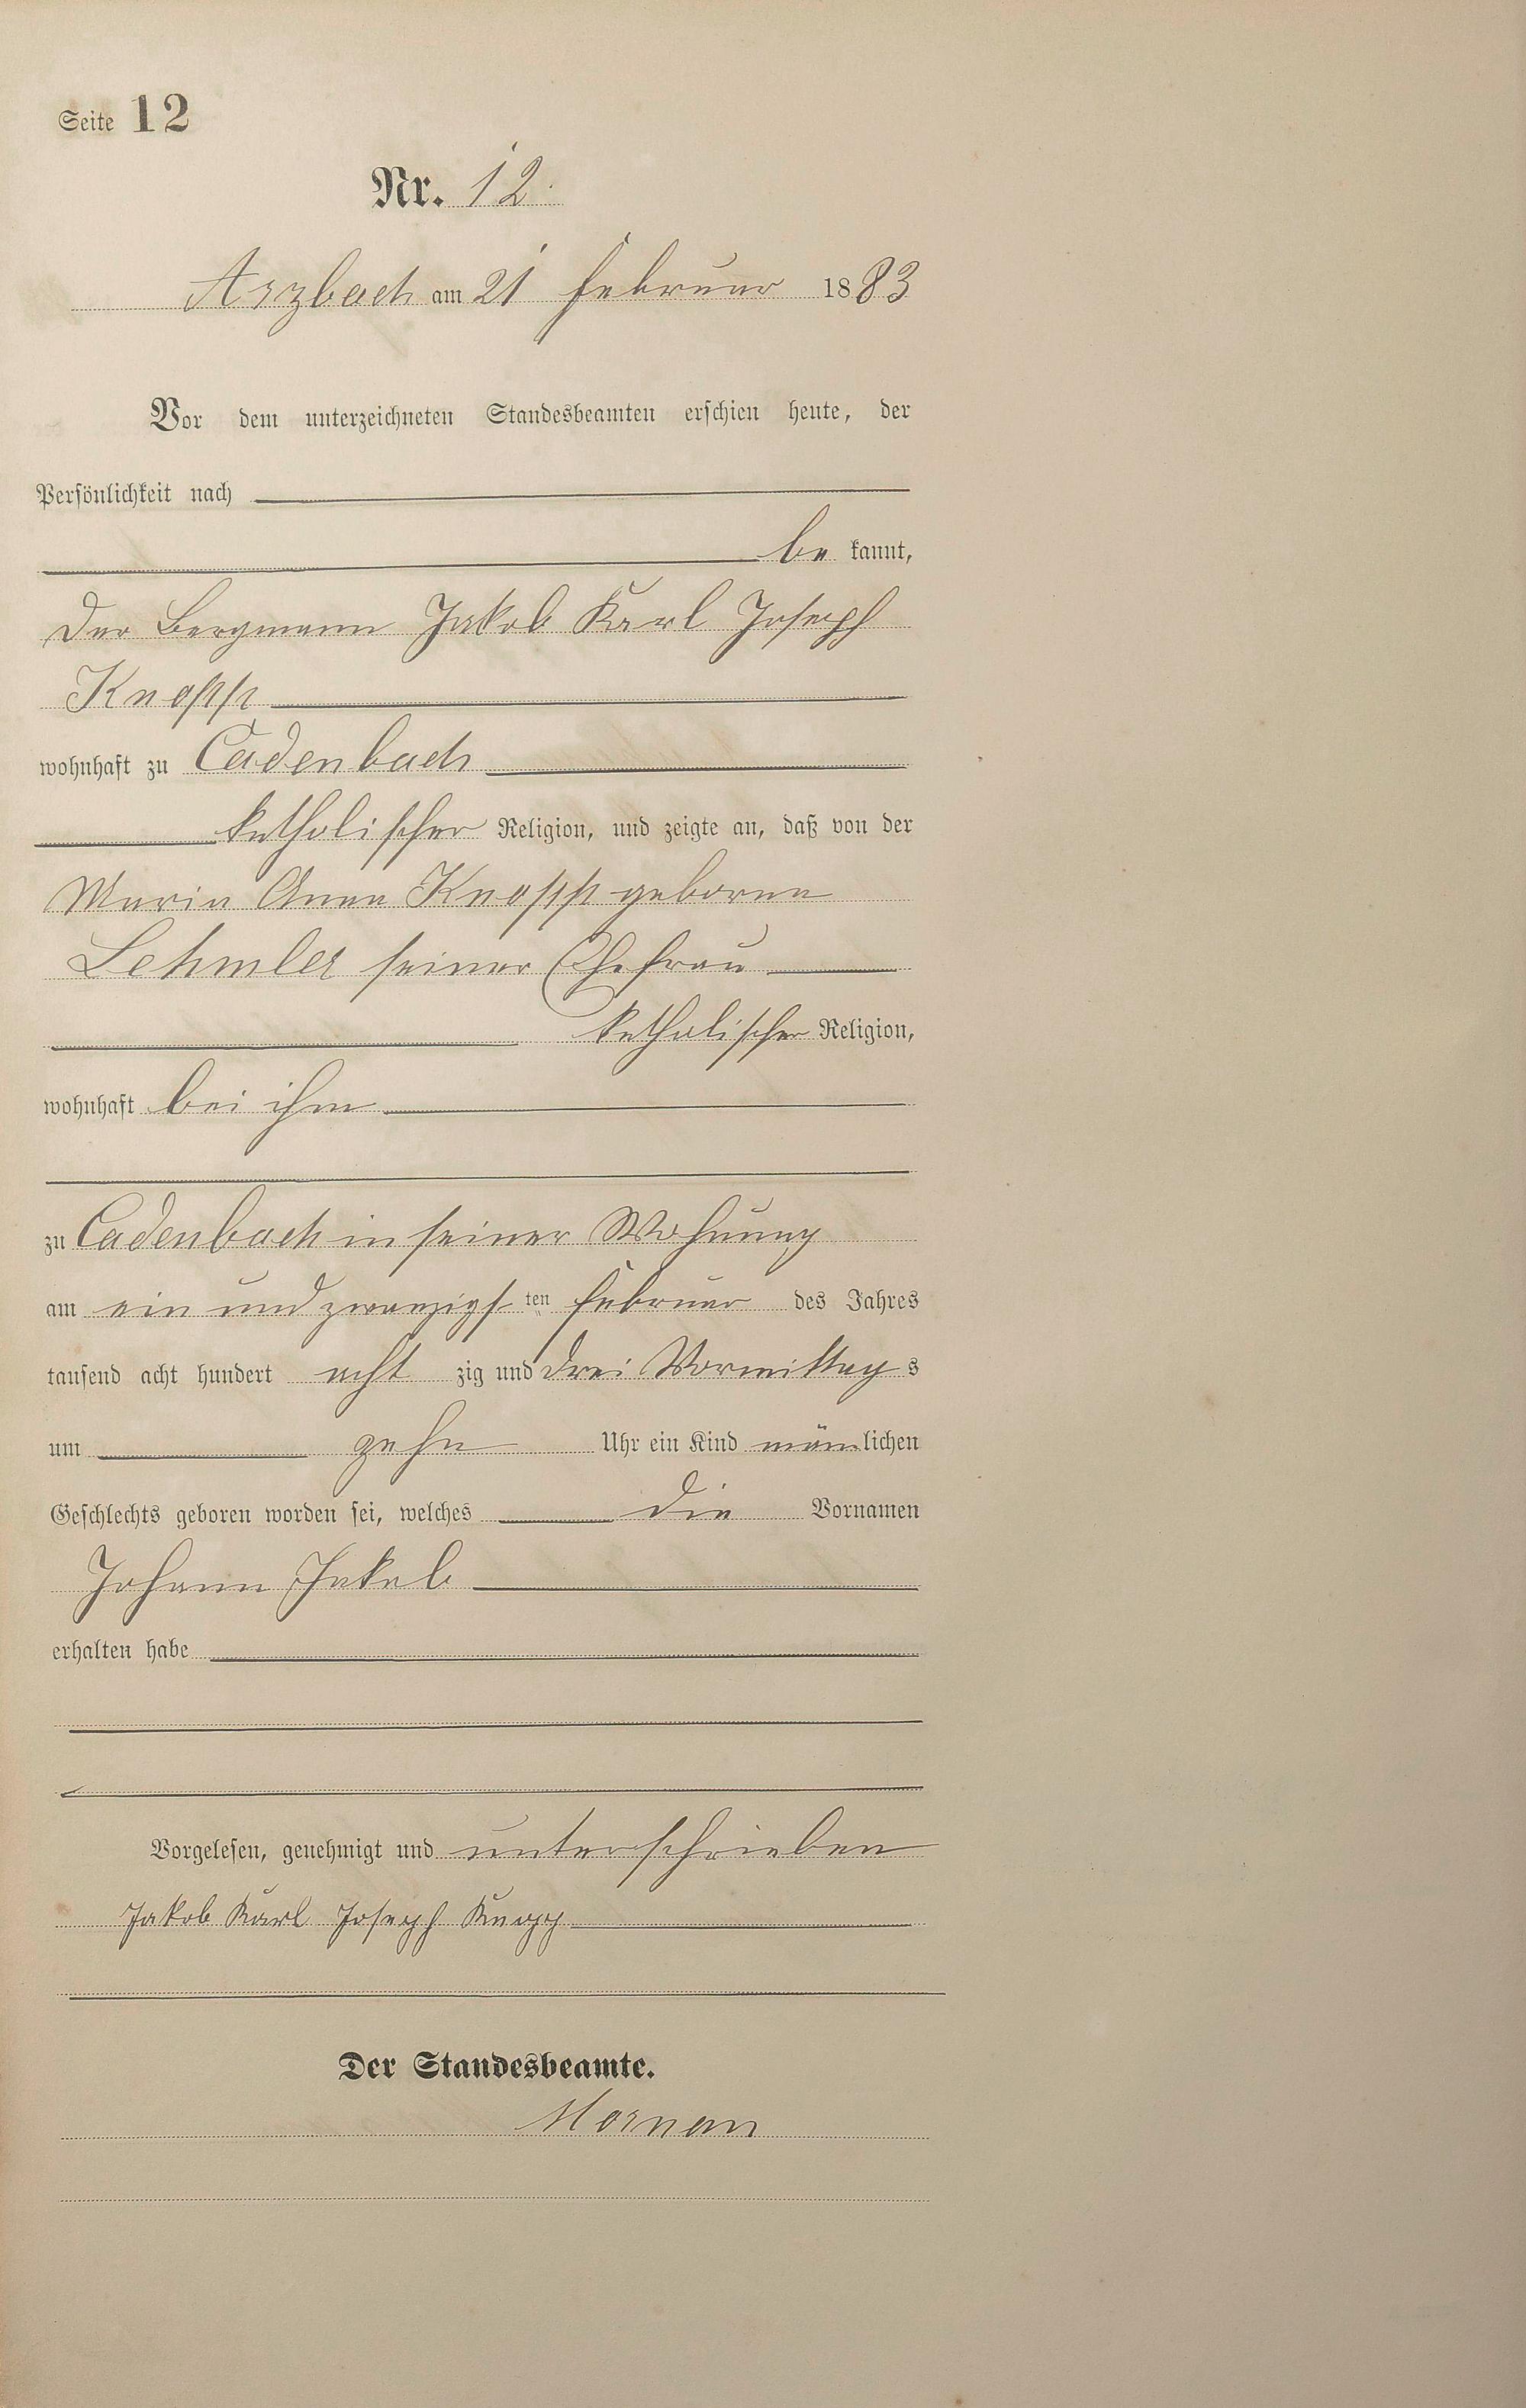 Seite 12
Nr. 12.
Arzbach am 21 Februar 1883
Vor dem unterzeichneten Standesbeamten erschien heute, der
Persönlichkeit nach
be kannt,
der Bergmann Jakob Karl Joseph
Knopp
wohnhaft zu Cadenbach
katholischer Religion, und zeigte an, daß von der
Maria Anna Knopp geborne
Lehmler seiner Ehefrau
katholischer Religion,
wohnhaft bei ihm
zu Cadenbach in seiner Wohnung
am ein und zwanzigsten Februar des Jahres
tausend acht hundert acht zig und drei Vormittags
um zehn Uhr ein Kind männlichen
Geschlechts geboren worden sei, welches die Vornamen
Johann Jakob
erhalten habe
Vorgelesen, genehmigt und unterschrieben
Jakob Karl Joseph Knopp
Der Standesbeamte.